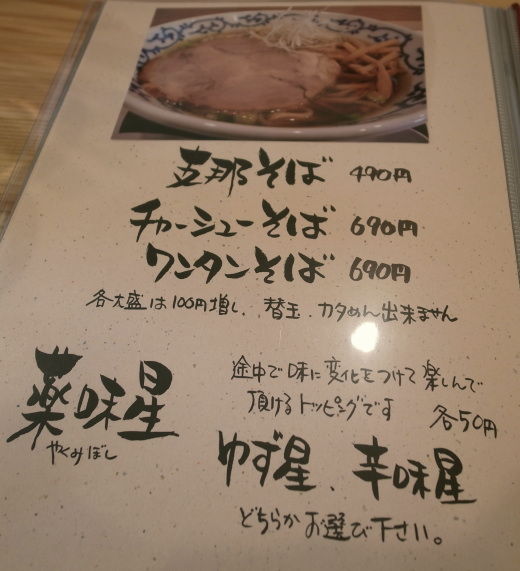 支那そば 490円
チャーシューそば 690円
ワンタンそば 690円
各大盛は100円増し、替玉、カタめん出来ません
薬味星
やくみぼし
途中で味に変化をつけて楽しんで
頂けるトッピングです 各50円
ゆず星、辛味星
どちらかお選び下さい。